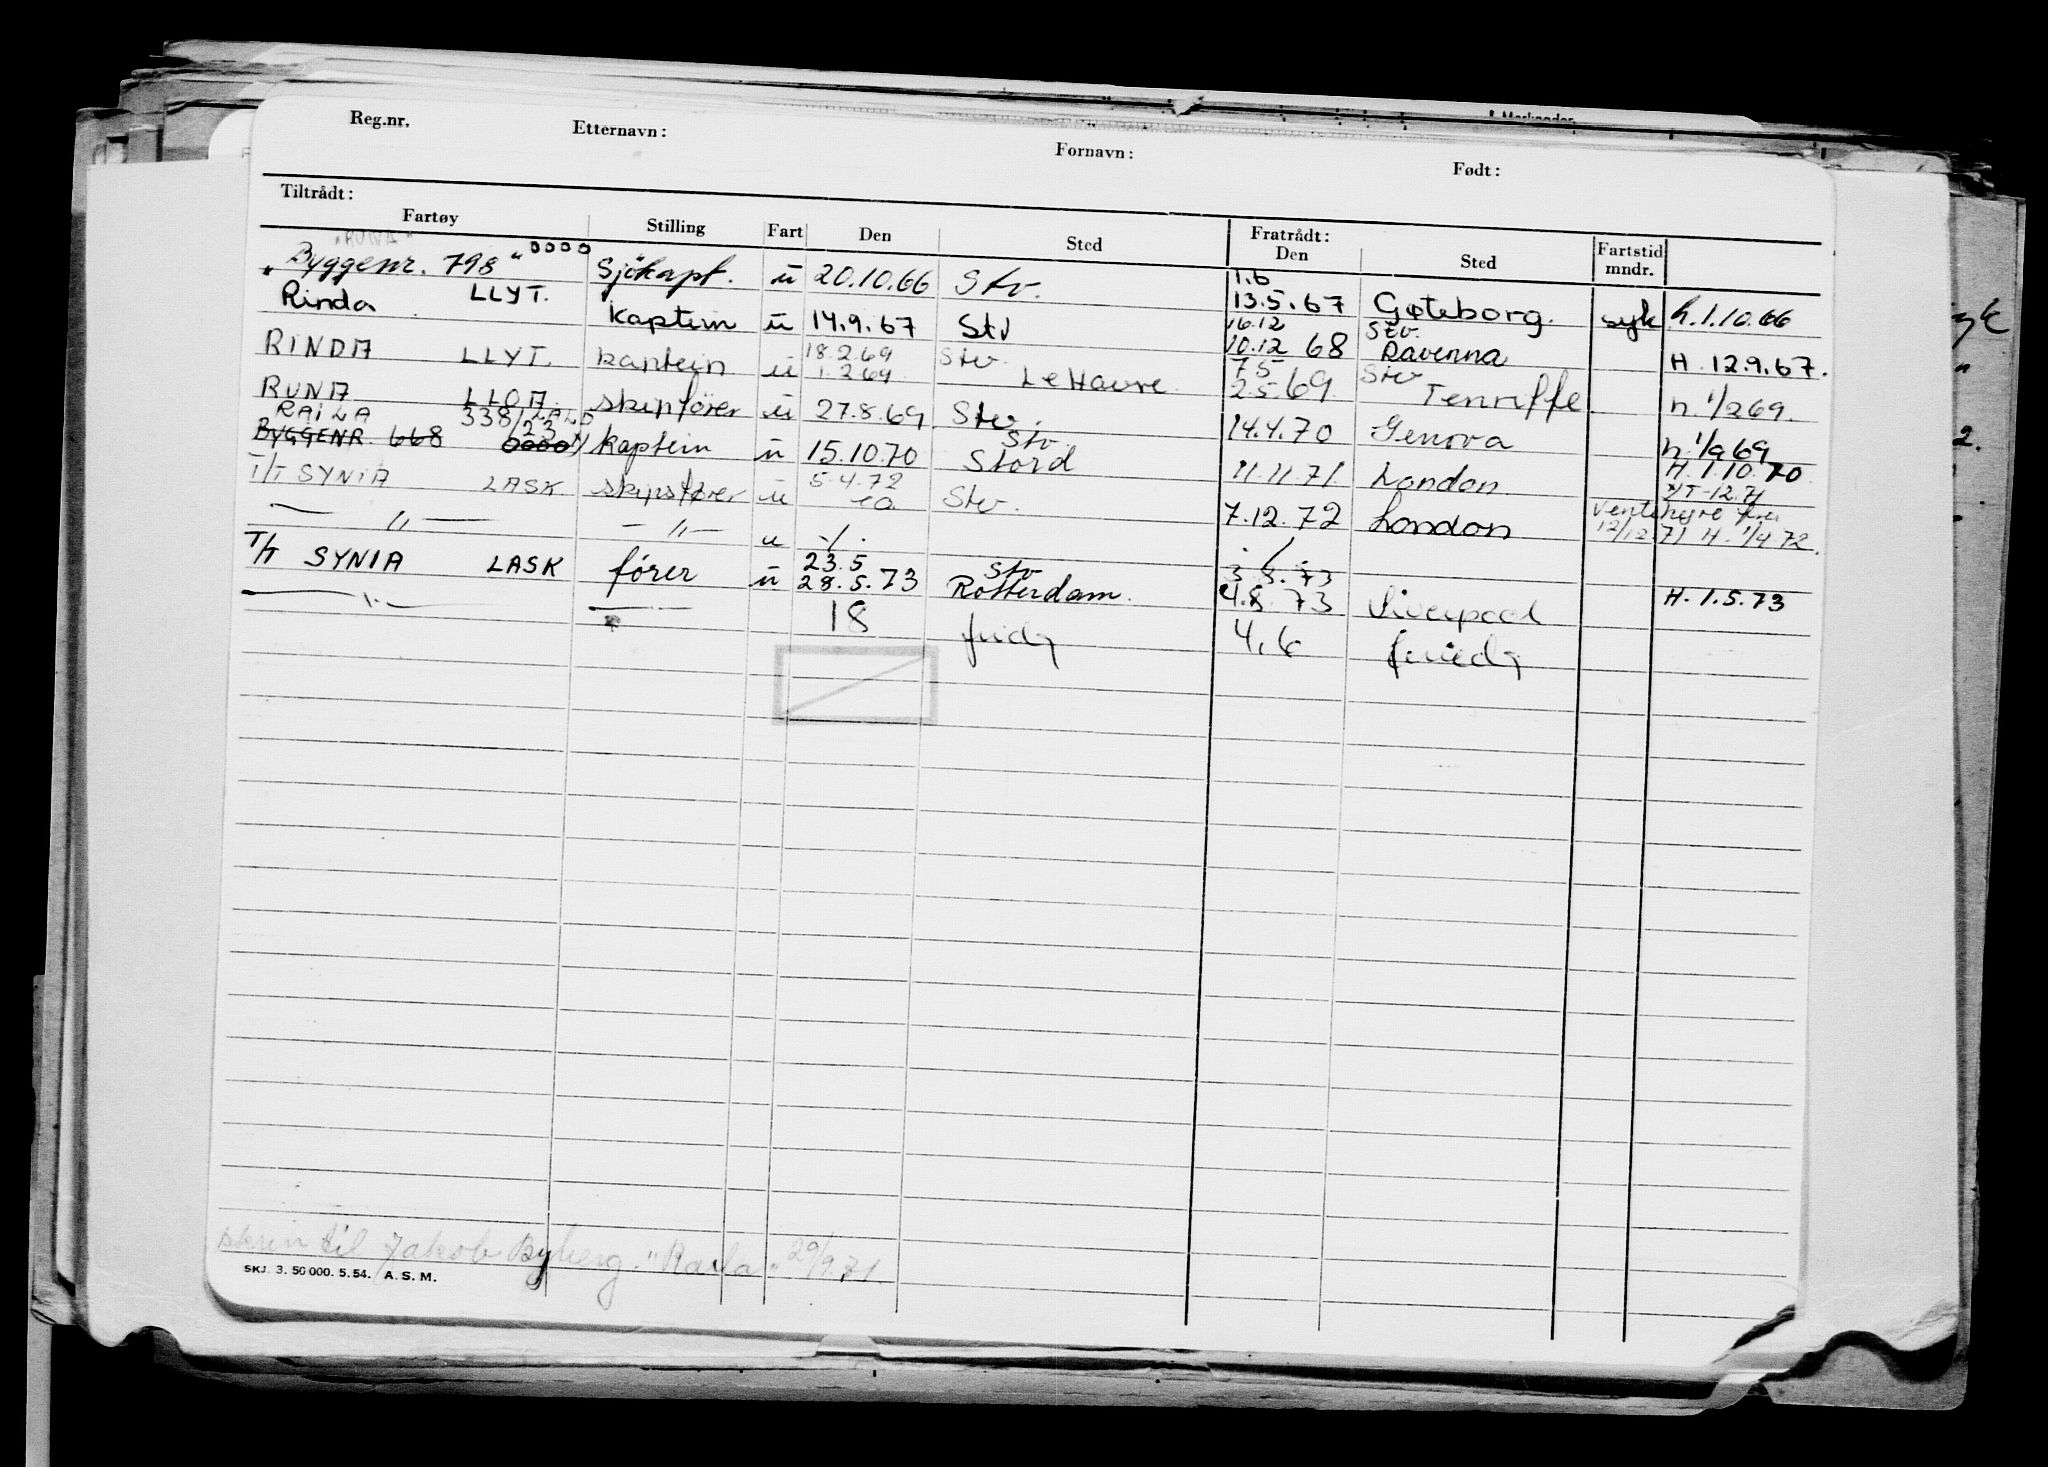 Reg.nr. Etternavn: Fornavn: Født:
Tiltrådt: Fratrådt:
Fartøy Stilling Fart Den Sted Den Sted Fartstid mndr.
"RUNA"
"Byggenr. 798" 0000 Sjökapt. u 20.10.66 Stv. 1.6 13.5.67 Gøteborg. syk h.1.10.66
Rinda LLYT. kaptein u 14.9.67 Stv 16.12 10.12 68 Stv. Ravenna H. 12.9.67.
RINDA LLYT. kaptein u 18.2.69 1.2.69 Stv. Le Havre 7.5 2.5.69 Stv Tenriffe h. 1/2 69.
RUNA LLOA skipsfører u 27.8.69 Stv. 14.4.70 Genova h. 1/9 69
RAILA 338/ 23
BYGGENR. 668 0000 kaptein u 15.10.70 Stv. Stord 11.11.71 London H. 1.10.70
T/T SYNIA LASK skipsfører u 5.4.72 Stv. 7.12.72 London 12/12.71 H. 1/4 72.
— " — — " — u
T/T SYNIA LASK fører u 23.5 28.5.73 Stv Rotterdam. 3.8.73 4.8.73 Liverpool H. 1.5.73
18 4.6
skrin til Jakob Byberg. "Raila" 29/9.71
SKJ. 3. 50 000. 5. 54. A. S. M.